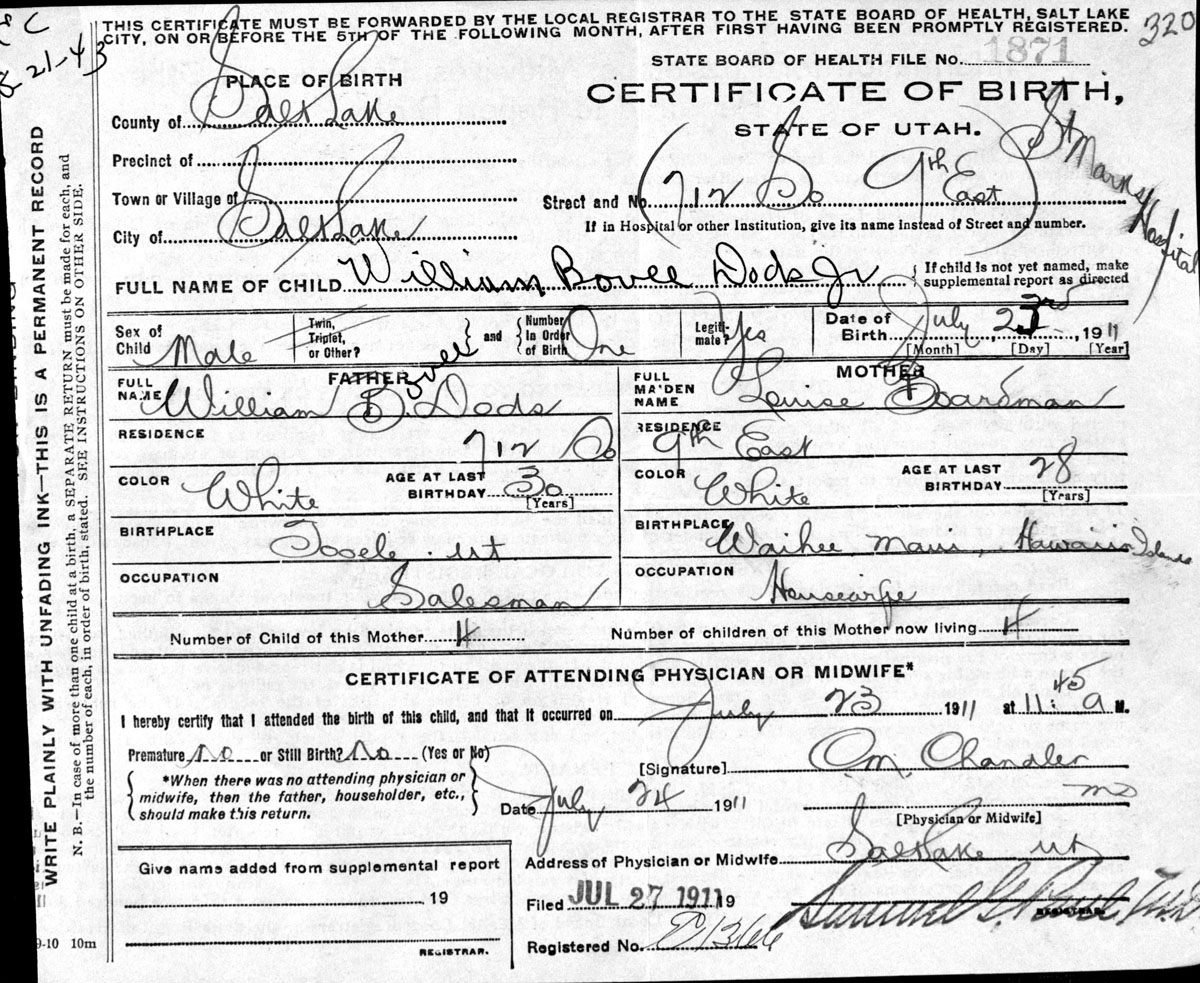 THIS CERTIFICATE MUST BE FORWARDED BY THE LOCAL REGISTRAR TO THE STATE BOARD OF HEALTH, SALT LAKE
CITY, ON OR BEFORE THE 5TH OF THE FOLLOWING MONTH, AFTER FIRST HAVING BEEN PROMPTLY REGISTERED.
320
21-43
WRITE PLAINLY WITH UNFADING INK—THIS IS A PERMANENT RECORD
N. B.—In case of more than one child at a birth, a SEPARATE RETURN must be made for each, and
the number of each, in order of birth, stated. SEE INSTRUCTIONS ON OTHER SIDE.
STATE BOARD OF HEALTH FILE No. 1871
PLACE OF BIRTH
CERTIFICATE OF BIRTH,
STATE OF UTAH.
County of Salt Lake
Precinct of
Town or Village of
City of Salt Lake
Street and No. (712 So 9th East) St Marks Hospital
If in Hospital or other Institution, give its name instead of Street and number.
FULL NAME OF CHILD William Bovee Dods Jr
{ If child is not yet named, make
supplemental report as directed
Sex of Child Male
Twin, Triplet, or Other? } and { Number In Order of Birth One
Legiti-mate? Yes
Date of Birth July 23rd, 1911
[Month] [Day] [Year]
FATHER
FULL NAME William B. Bovee Dods
MOTHER
FULL MAIDEN NAME Louise Boardman
RESIDENCE 712 So
RESIDENCE 9th East
COLOR White AGE AT LAST BIRTHDAY 30 [Years]
COLOR White AGE AT LAST BIRTHDAY 28 [Years]
BIRTHPLACE Tooele Ut
BIRTHPLACE Waihee Maui, Hawaiian Islands
OCCUPATION Salesman
OCCUPATION Housewife
Number of Child of this Mother 4 Number of children of this Mother now living 4
CERTIFICATE OF ATTENDING PHYSICIAN OR MIDWIFE*
I hereby certify that I attended the birth of this child, and that it occurred on July 23 1911 at 11:45 a M.
Premature no or Still Birth? No (Yes or No)
{ *When there was no attending physician or
midwife, then the father, householder, etc.,
should make this return. }
[Signature] Chandler
Date July, 24 1911 MD
[Physician or Midwife]
Address of Physician or Midwife Salt Lake Ut
Give name added from supplemental report
19
REGISTRAR.
Filed JUL 27 1911 19
REGISTRAR.
Registered No. 1366
9-10 10m